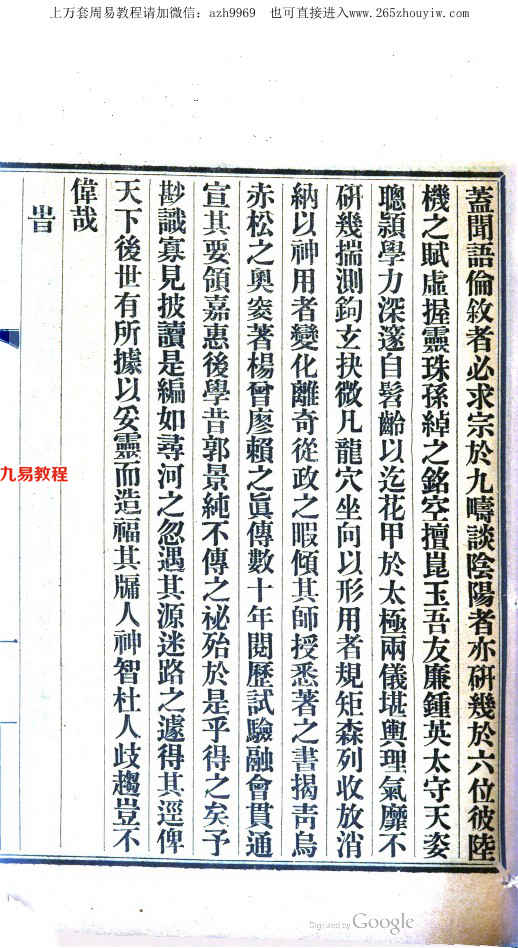 上万套周易教程请加微信：azh9969 也可直接进入www.265zhouyiw.com
蓋聞語倫敘者必求宗於九疇談陰陽者亦研幾於六位彼陸
機之賦虛握靈珠孫綽之銘空擅崑玉吾友廉鍾英太守天姿
聰穎學力深邃自髫齡以迄花甲於太極兩儀堪輿理氣靡不
研幾揣測鉤玄抉微凡龍穴坐向以形用者規矩森列收放消
納以神用者變化離奇從政之暇傾其師授悉著之書揭靑烏
赤松之奧窔著楊曾廖賴之眞傳數十年閱歷試驗融會貫通
宣其要領嘉惠後學昔郭景純不傳之祕殆於是乎得之矣予
尠識寡見披讀是編如尋河之忽遇其源迷路之遽得其逕俾
天下後世有所據以妥靈而造福其牖人神智杜人歧趨豈不
偉哉
旹
九易教程
Digitized by Google